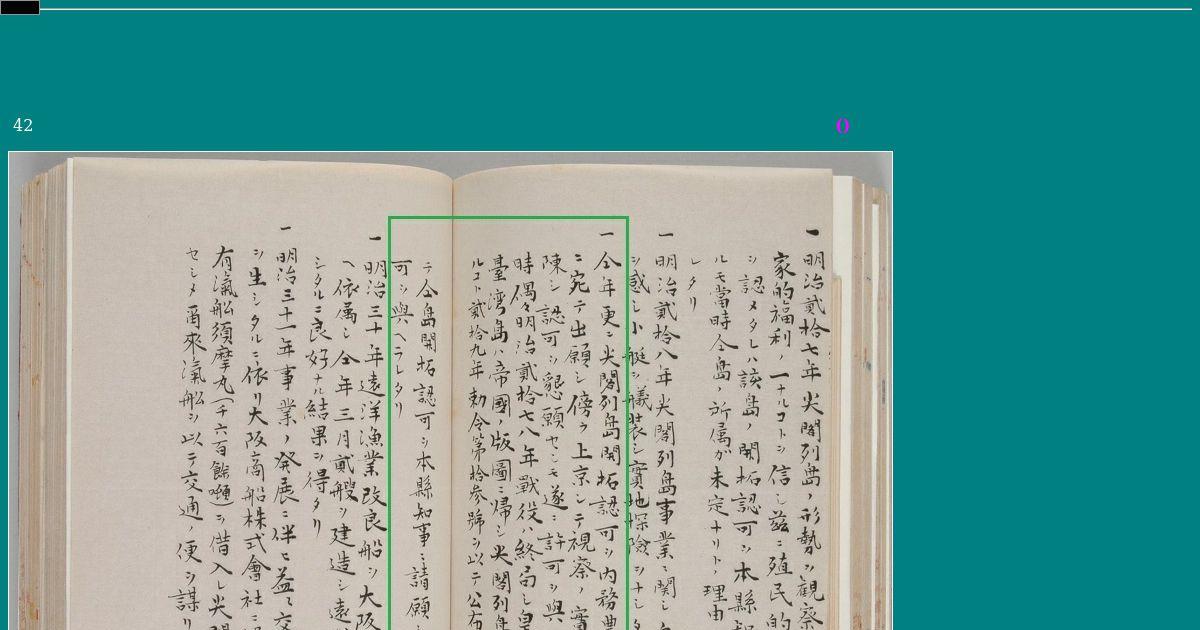 42
()
一明治貳拾七年尖閣列島ノ形勢ヲ観察
家的福利ノ一ナルコトヲ信シ茲ニ殖民的
ヲ認メタレハ該島ノ開拓認可ヲ本縣知
ルモ當時仝島ノ所属カ未定ナリトノ理由
レタリ
一明治貳拾八年尖閣列島事業ニ関シ
ヲ感シ小艇ヲ艤装シ實地探險ヲナシタ
一仝年更ニ尖閣列島開拓認可ヲ内務農
ニ宛テ出願シ傍ラ上京シテ視察ノ實
陳シ認可ヲ懇願セシモ遂ニ許可ヲ與
時偶々明治貳拾七八年戰役ハ終局シ皇
臺湾島ハ帝國ノ版圖ニ帰シ尖閣列島
ルコト貳拾九年勅令第拾参號ヲ以テ公布
テ仝島開拓認可ヲ本縣知事ニ請願シ
可ヲ與ヘラレタリ
一明治三十年遠洋漁業改良船ヲ大阪
ヘ依属シ仝年三月貳艘ヲ建造シ遠
シタルニ良好ナル結果ヲ得タリ
一明治三十一年事業ノ発展ニ伴ヒ益々交
ヲ生シタルニ依リ大阪商船株式會社ニ
有滊船須摩丸(千六百餘噸)ヲ借入レ尖閣
セシメ爾來滊船ヲ以テ交通ノ便ヲ謀リ